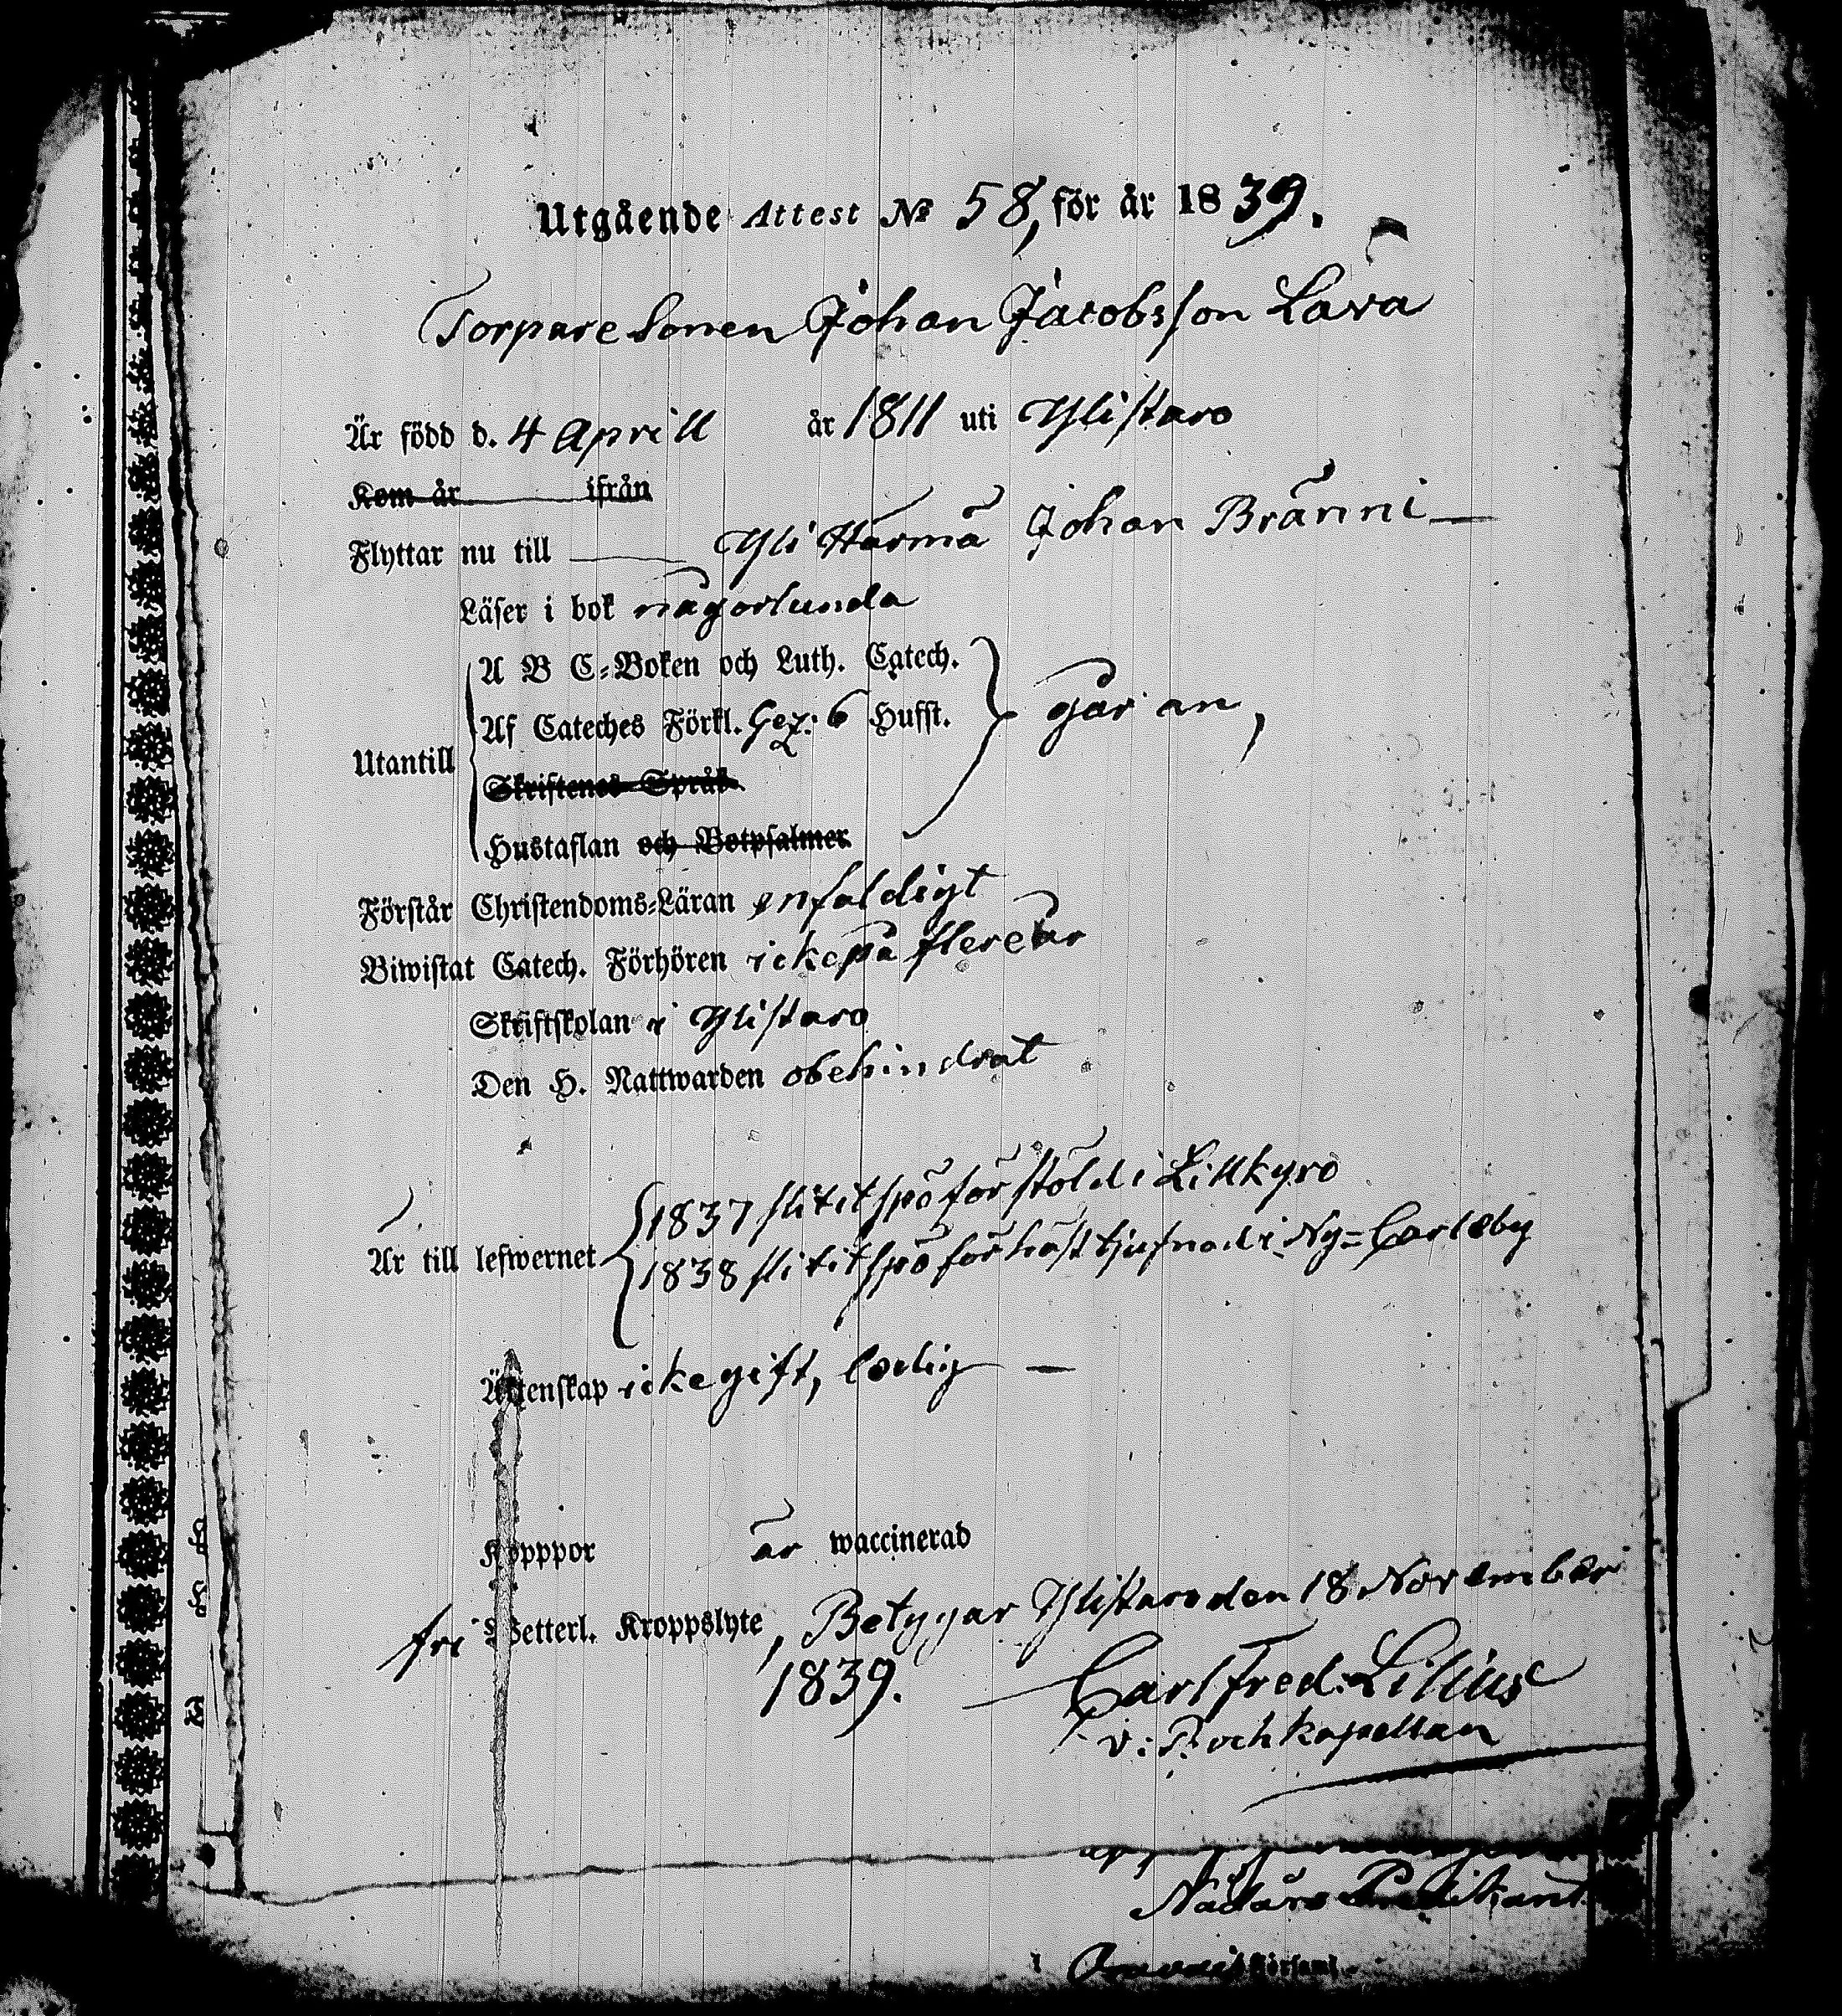 Utgående Attest No 58, för år 1839.
Torpare Sonen Johan Jacobsson Lava
Är född d. 4 Aprill år 1811 uti Ylistaro
Kom år ifrån
Flyttar nu till Yli Härmä Johan Bränni
Läser i bok någorlunda
A B C-Boken och Luth. Catech.
Af Cateches Förkl. Gez: 6 Hufst. går an,
Utantill
Skriftenes Språk
Hustaflan och Botpsalmer
Förstår Christendoms-Läran enfaldigt
Biwistat Catech. Förhören icke på flere år
Skriftskolan i Ylistaro
Den H. Nattwarden obehindrat
1837 slitit spö för stöld i Lillkyro
Är till lefwernet
1838 slitit spö för häst tjufnad i Ny=Carleby
Äktenskap icke gift, ledig
Kopppor är waccinerad
fri Wetterl. Kroppslyte, Betygar Ylistaro den 18 November
1839. Carl Fred. Lilius
v. P. och kapellan
Nådårs Predikant
församl.